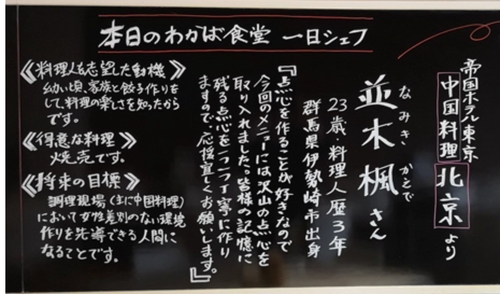 本日のわかば食堂 一日シェフ
帝国ホテル東京
中国料理 北京 より
なみき かとで
並木 楓 さん
23歳、料理人歴3年
群馬県伊勢崎市出身
『点心を作ることが好きなので
今回のメニューには沢山の点心を
取り入れました。皆様の記憶に
残る点心を一つ一つ丁寧に作り
ますので、応援宜しくお願いします。』
《料理人を志望した動機》
幼い頃、家族と餃子作りを
して、料理の楽しさを知ったから
です。
《得意な料理》
焼売です。
《将来の目標》
調理現場(主に中国料理)
において女性差別のない環境
作りを先導できる人間に
なることです。